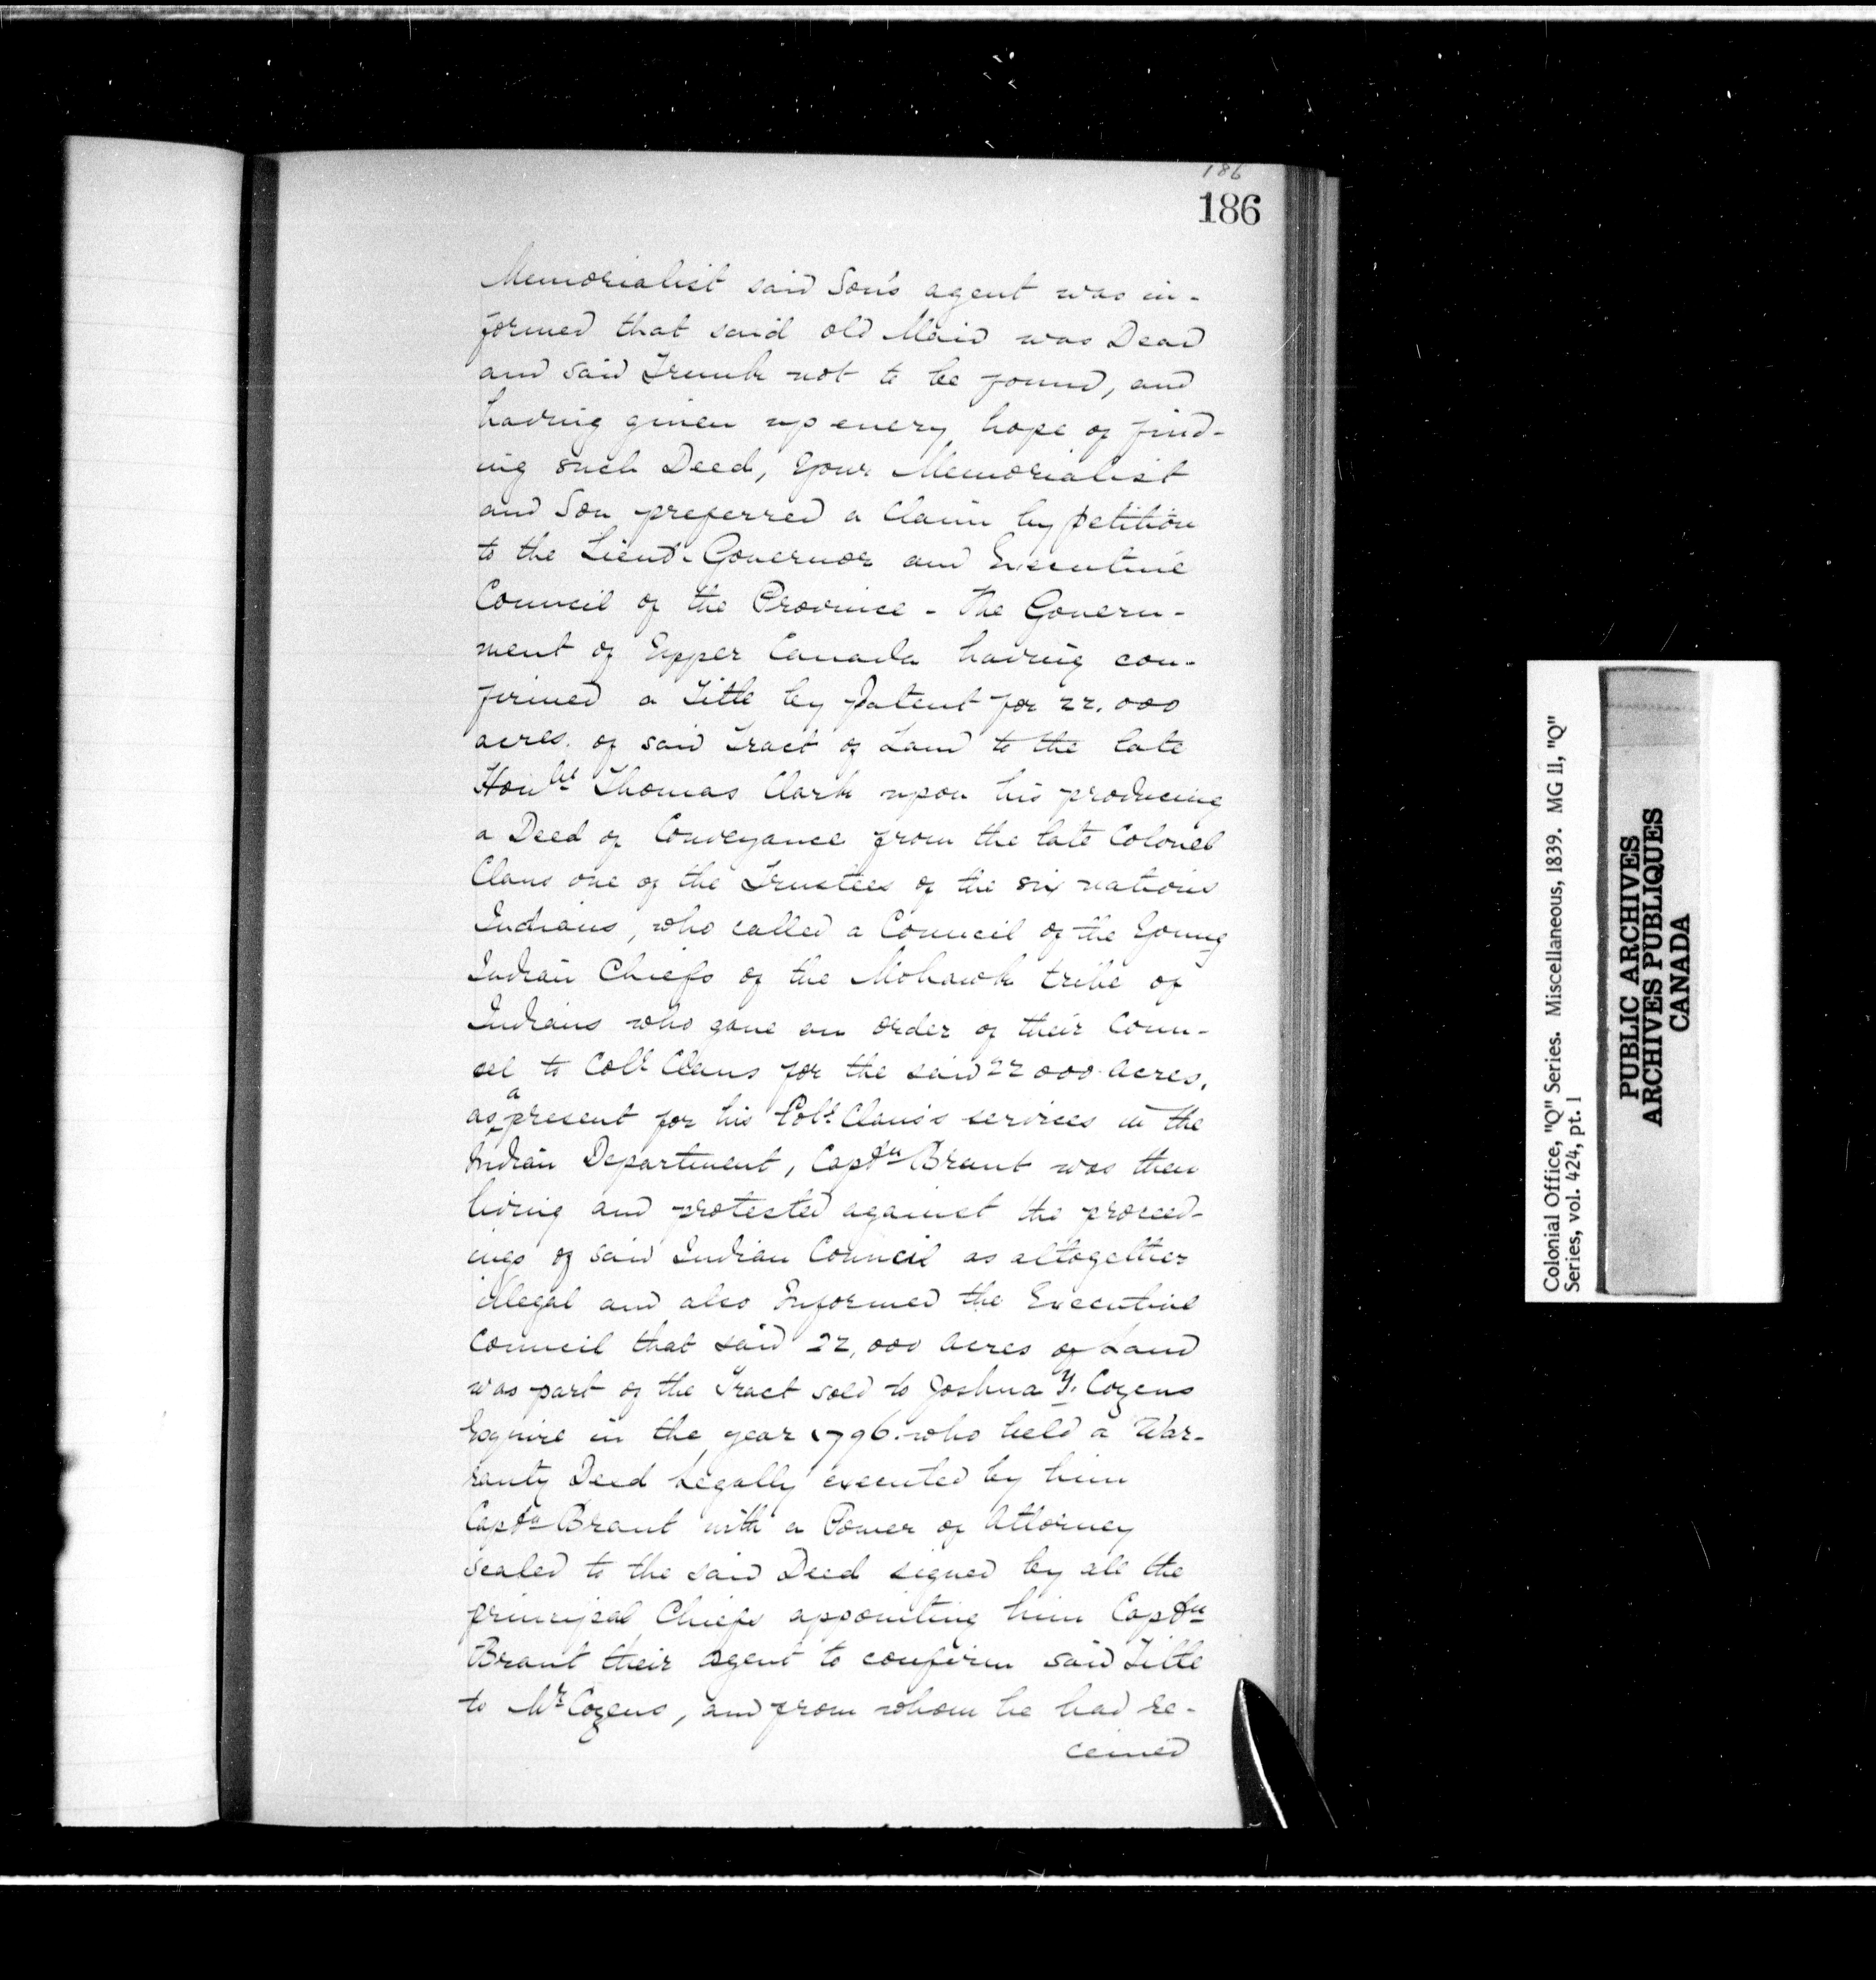 186
186
Memorialist said Son's agent was in-
formed that said old Maid was Dead
and said Trunk not to be found, and
having given up every hope of find-
ing such Deed, Your Memorialist
and Son preferred a Claim by petition
to the Lieut. Governor and Executive
Council of the Province - The Govern-
ment of Upper Canada having con-
firmed a Title by Patent for 22.000
acres. of said Tract of Land to the late
Honble Thomas Clark upon his producing
a Deed of Conveyance from the late Colonel
Claus one of the Trustees of the six nations
Indians, who called a Council of the Young
Indian Chiefs of the Mohawk tribe of
Indians who gave an order of their Coun-
sel to Coll Claus for the said 22 000 acres,
as a present for his Coll. Claus's services in the
Indian Department, Captn Brant was then
living and protested against the proceed-
ings of said Indian Council as altogether
illegal and also Informed the Executive
Council that said 22,000 acres of Land
was part of the Tract sold to Joshua Y. Cozens
Esquire in the year 1796. who held a War-
ranty Deed Legally executed by him
Captn Brant with a Power of Attorney
sealed to the said Deed signed by all the
principal Chiefs appointing him Captn
Brant their agent to confirm said Title
to Mr Cozens, and from whom he had re-
ceived
Colonial Office, "Q" Series. Miscellaneous, 1839. MG 11, "Q"
Series, vol. 424, pt. 1
PUBLIC ARCHIVES
ARCHIVES PUBLIQUES
CANADA